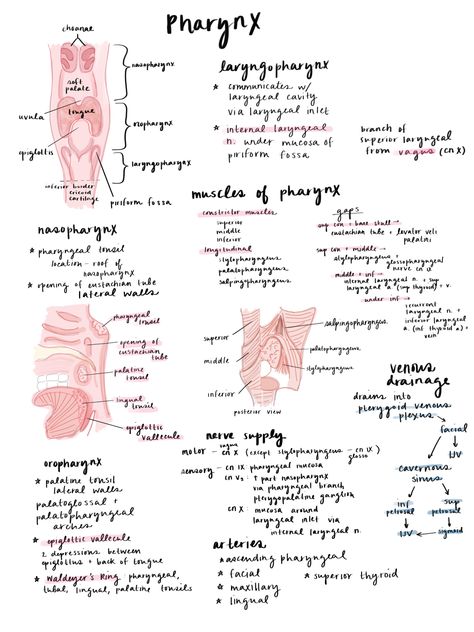 pharynx
choanae
nasopharynx
soft
palate
uvula
tongue
oropharynx
epiglottis
laryngopharynx
inferior border
cricoid
cartilage
piriform fossa
laryngopharynx
* communicates w/
laryngeal cavity
via laryngeal inlet
* internal laryngeal
n. under mucosa of
piriform fossa
branch of
superior laryngeal
from vagus (cn X)
muscles of pharynx
constrictor muscles
superior
middle
inferior
longitudinal
stylopharyngeus
palatopharyngeus
salpingopharyngeus
gaps
sup con + base skull →
eustachian tube + levator veli
palatini
sup con + middle →
stylopharyngeus + glossopharyngeal
nerve cn IX
middle + inf →
internal laryngeal n + sup
laryngeal a (sup thyroid) + v.
under inf →
recurrent
laryngeal n +
inferior laryngeal
a. (inf thyroid a) +
vein
nasopharynx
* pharyngeal tonsil
location - roof of
nasopharynx
* opening of eustachian tube
lateral walls
pharyngeal
tonsil
opening of
eustachian
tube
palatine
tonsil
lingual
tonsil
epiglottic
vallecule
superior
middle
inferior
salpingopharyngeus
palatopharyngeus
stylopharyngeus
posterior view
venous
drainage
drains into
pterygoid venous
plexus
facial
IJV
cavernous
sinus
inf
petrosal
sup
petrosal
IJV
sigmoid
nerve supply
vagus
motor - cn X (except stylopharyngeus - cn IX)
glosso
sensory - cn IX pharyngeal mucosa
cn V2 : ↑ part nasopharynx
via pharyngeal branch
pterygopalatine ganglion
cn X : mucosa around
laryngeal inlet via
internal laryngeal n.
oropharynx
* palatine tonsil
lateral walls
* palatoglossal +
palatopharyngeal
arches
* epiglottic vallecule
2 depressions between
epiglottus + back of tongue
* Waldeyer's Ring pharyngeal,
tubal, lingual, palatine tonsils
arteries
* ascending pharyngeal
* facial
* maxillary
* lingual
* superior thyroid